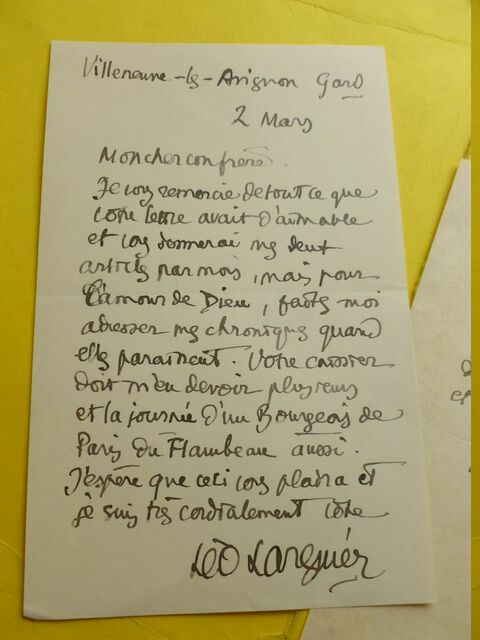 Villeneuve-lès-Avignon Gard
2 Mars
Mon cher confrère.
Je vous remercie de tout ce que
votre lettre avait d'aimable
et vous donnerai mes deux
articles par mois, mais pour
l'amour de Dieu, faites-moi
adresser mes chroniques quand
elles paraissent. Votre caissier
doit m'en devoir plusieurs
et la journée d'un Bourgeois de
Paris du Flambeau aussi.
J'espère que ceci vous plaira et
je suis très cordialement vôtre
Léo Larguier